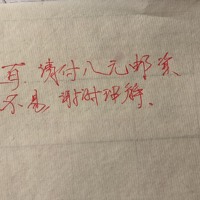 百.请付八元邮资、
不是,谢谢理解、